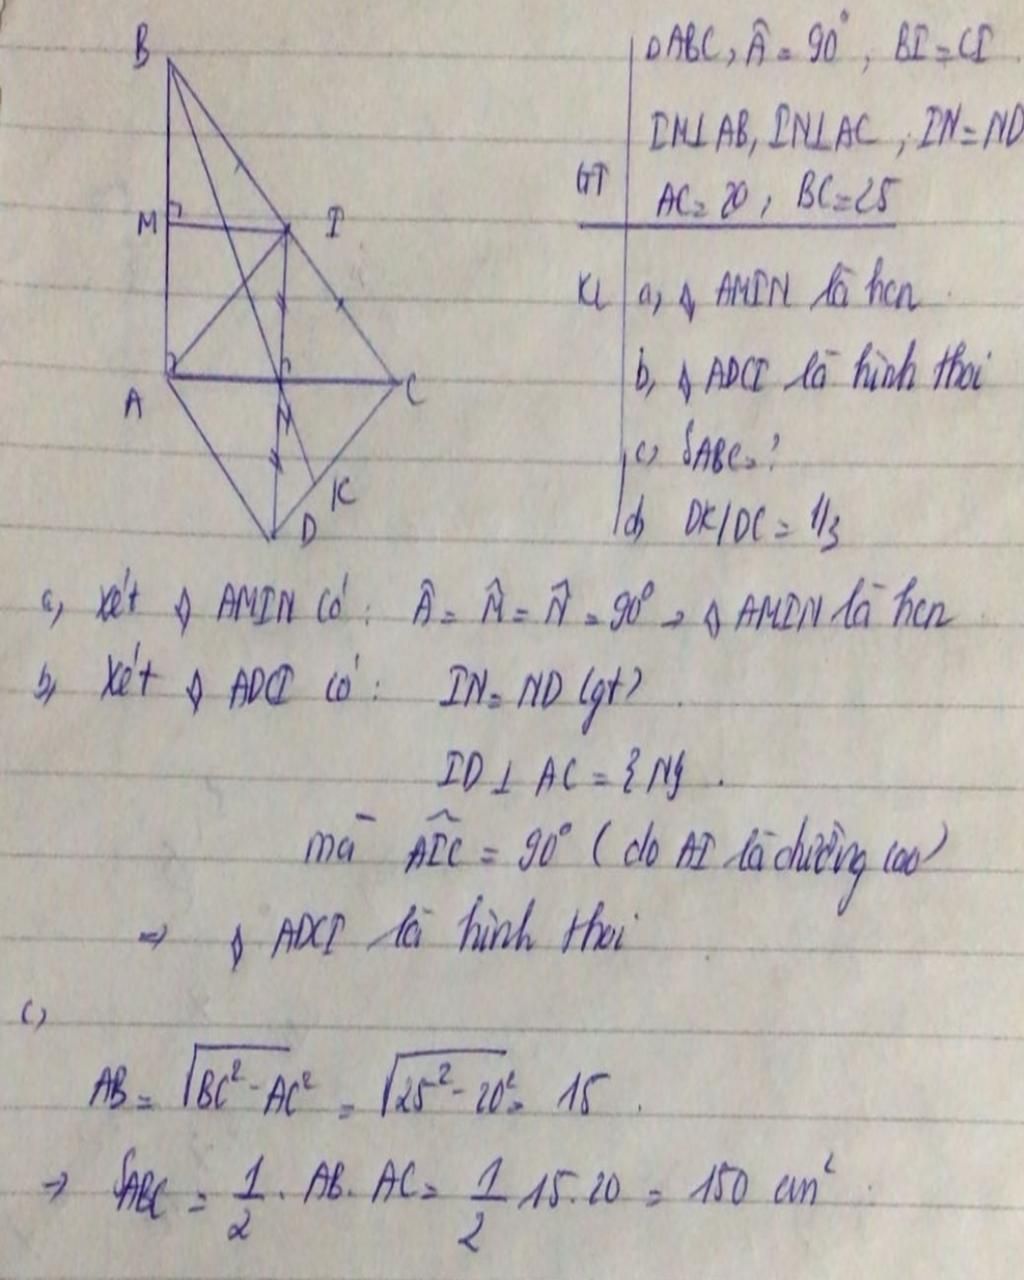 B
M
I
A
C
N
K
D
ΔABC, Â = 90°, BI = CI
IM⊥AB, IN⊥AC, IN = ND
GT
AC = 20, BC = 25
KL a, ◊ AMIN là hcn
b, ◊ ADCI là hình thoi
c, SABC = ?
d, DK/DC = 1/3
a, Xét ◊ AMIN có: Â = M̂ = N̂ = 90° → ◊ AMIN là hcn
b, Xét ◊ ADCI có: IN = ND (gt)
ID ⊥ AC = {N}.
mà AIC = 90° (do AI là đường cao)
=> ◊ ADCI là hình thoi
c,
AB = √BC² - AC² = √25² - 20² = 15.
→ SABC = 1/2 . AB. AC = 1/2 15.20 = 150 cm².